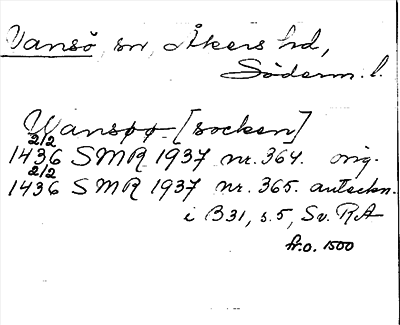 Vansö, sn, Åkers hd,
Söderm. l.
Wanspø [socken]
2/2
1436 SMR 1937 nr. 364. orig.
2/2
1436 SMR 1937 nr. 365. anteckn.
i B31, s. 5, Sv. RA
fr.o. 1500